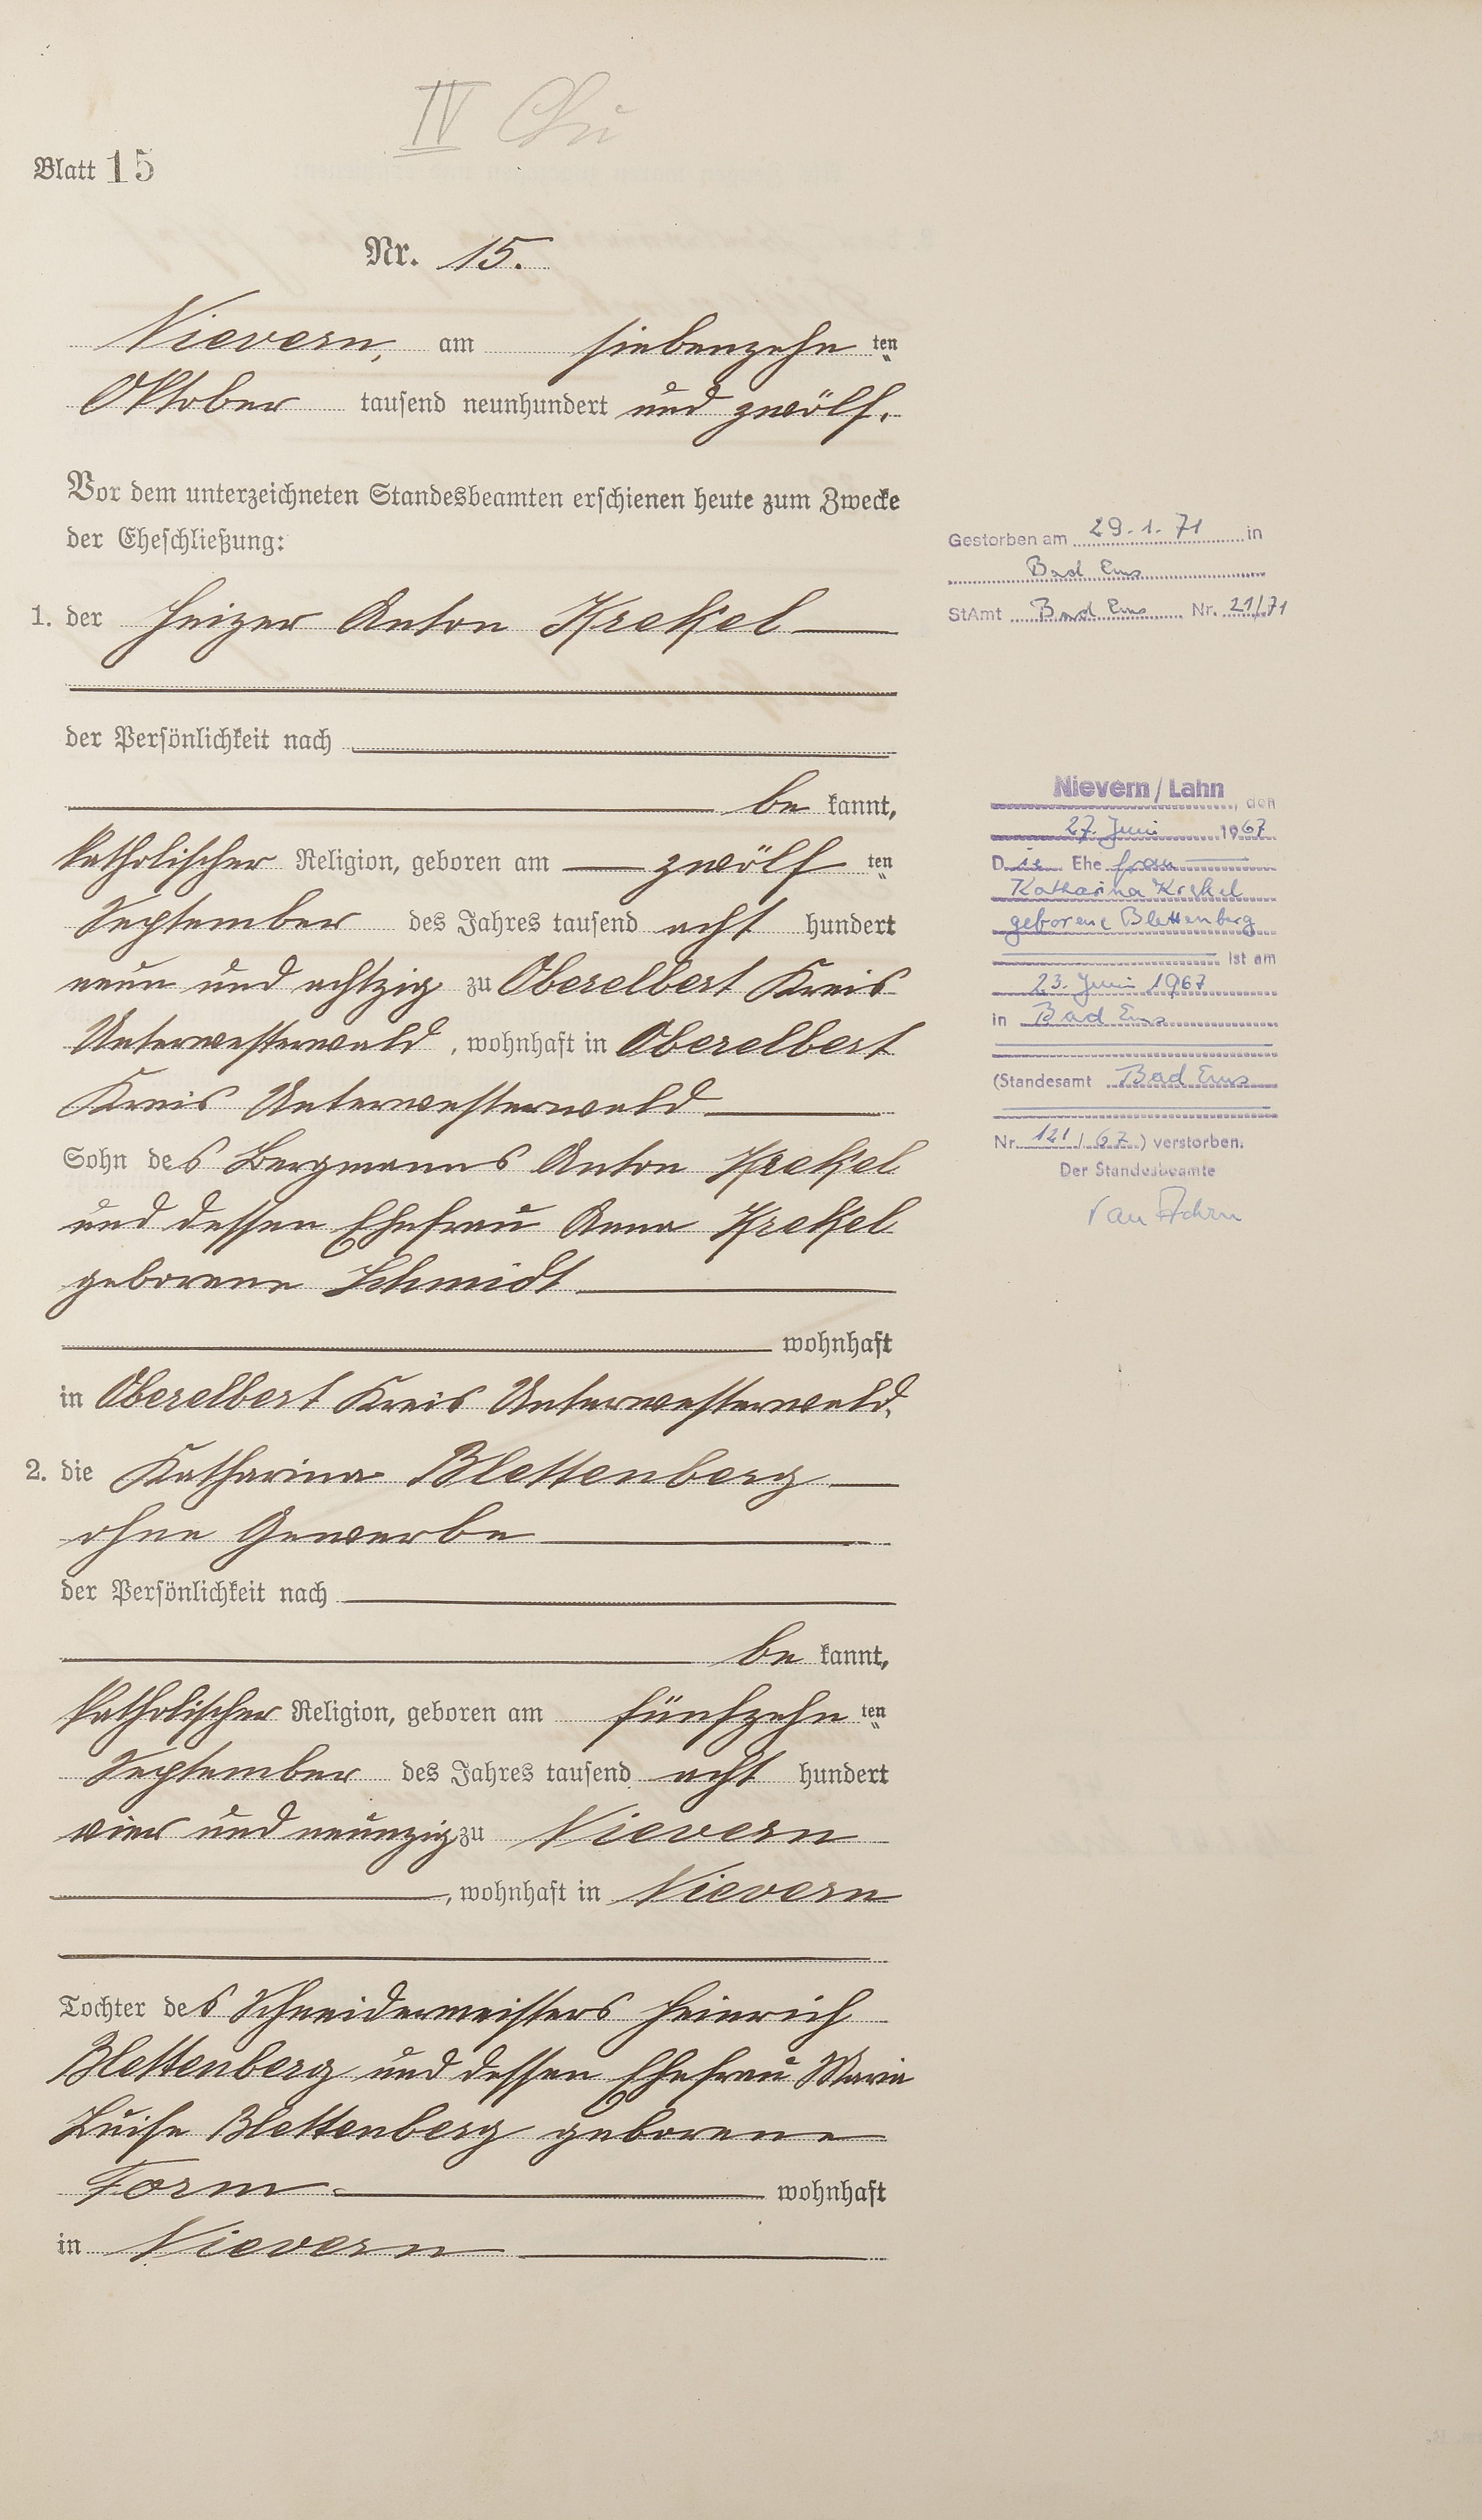 IV
Blatt 15
Nr. 15.
Nievern, am siebenzehn ten
Oktober tausend neunhundert und zwölf.
Vor dem unterzeichneten Standesbeamten erschienen heute zum Zwecke
der Eheschließung:
1. der Heizer Anton Krekel
der Persönlichkeit nach
be kannt,
katholischer Religion, geboren am zwölf ten
September des Jahres tausend acht hundert
neun und achtzig zu Oberelbert Kreis
Unterwesterwald, wohnhaft in Oberelbert
Kreis Unterwesterwald
Sohn des Bergmanns Anton Krekel
und dessen Ehefrau Anna Krekel
geborene Schmidt
wohnhaft
in Oberelbert Kreis Unterwesterwald,
2. die Katharina Blettenberg
ohne Gewerbe
der Persönlichkeit nach
be kannt,
katholischer Religion, geboren am fünfzehn ten
September des Jahres tausend acht hundert
vier und neunzig zu Nievern
, wohnhaft in Nievern
Tochter des Schneidermeisters Heinrich
Blettenberg und dessen Ehefrau Maria
Luise Blettenberg geborene
Form wohnhaft
in Nievern
Gestorben am 29.1.71 in
Bad Ems
StAmt Bad Ems Nr. 21/71
Nievern/Lahn, den
27. Juni 1967
Die Ehefrau
Katharina Krekel
geborene Blettenberg
ist am
23. Juni 1967
in Bad Ems
(Standesamt Bad Ems
Nr. 121/67) verstorben.
Der Standesbeamte